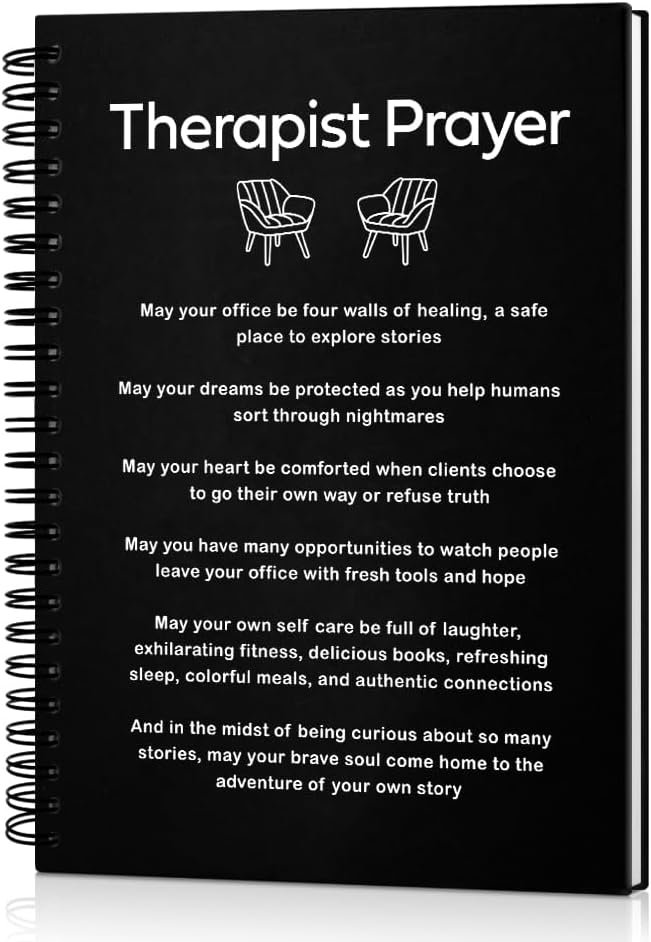 Therapist Prayer
May your office be four walls of healing, a safe
place to explore stories
May your dreams be protected as you help humans
sort through nightmares
May your heart be comforted when clients choose
to go their own way or refuse truth
May you have many opportunities to watch people
leave your office with fresh tools and hope
May your own self care be full of laughter,
exhilarating fitness, delicious books, refreshing
sleep, colorful meals, and authentic connections
And in the midst of being curious about so many
stories, may your brave soul come home to the
adventure of your own story